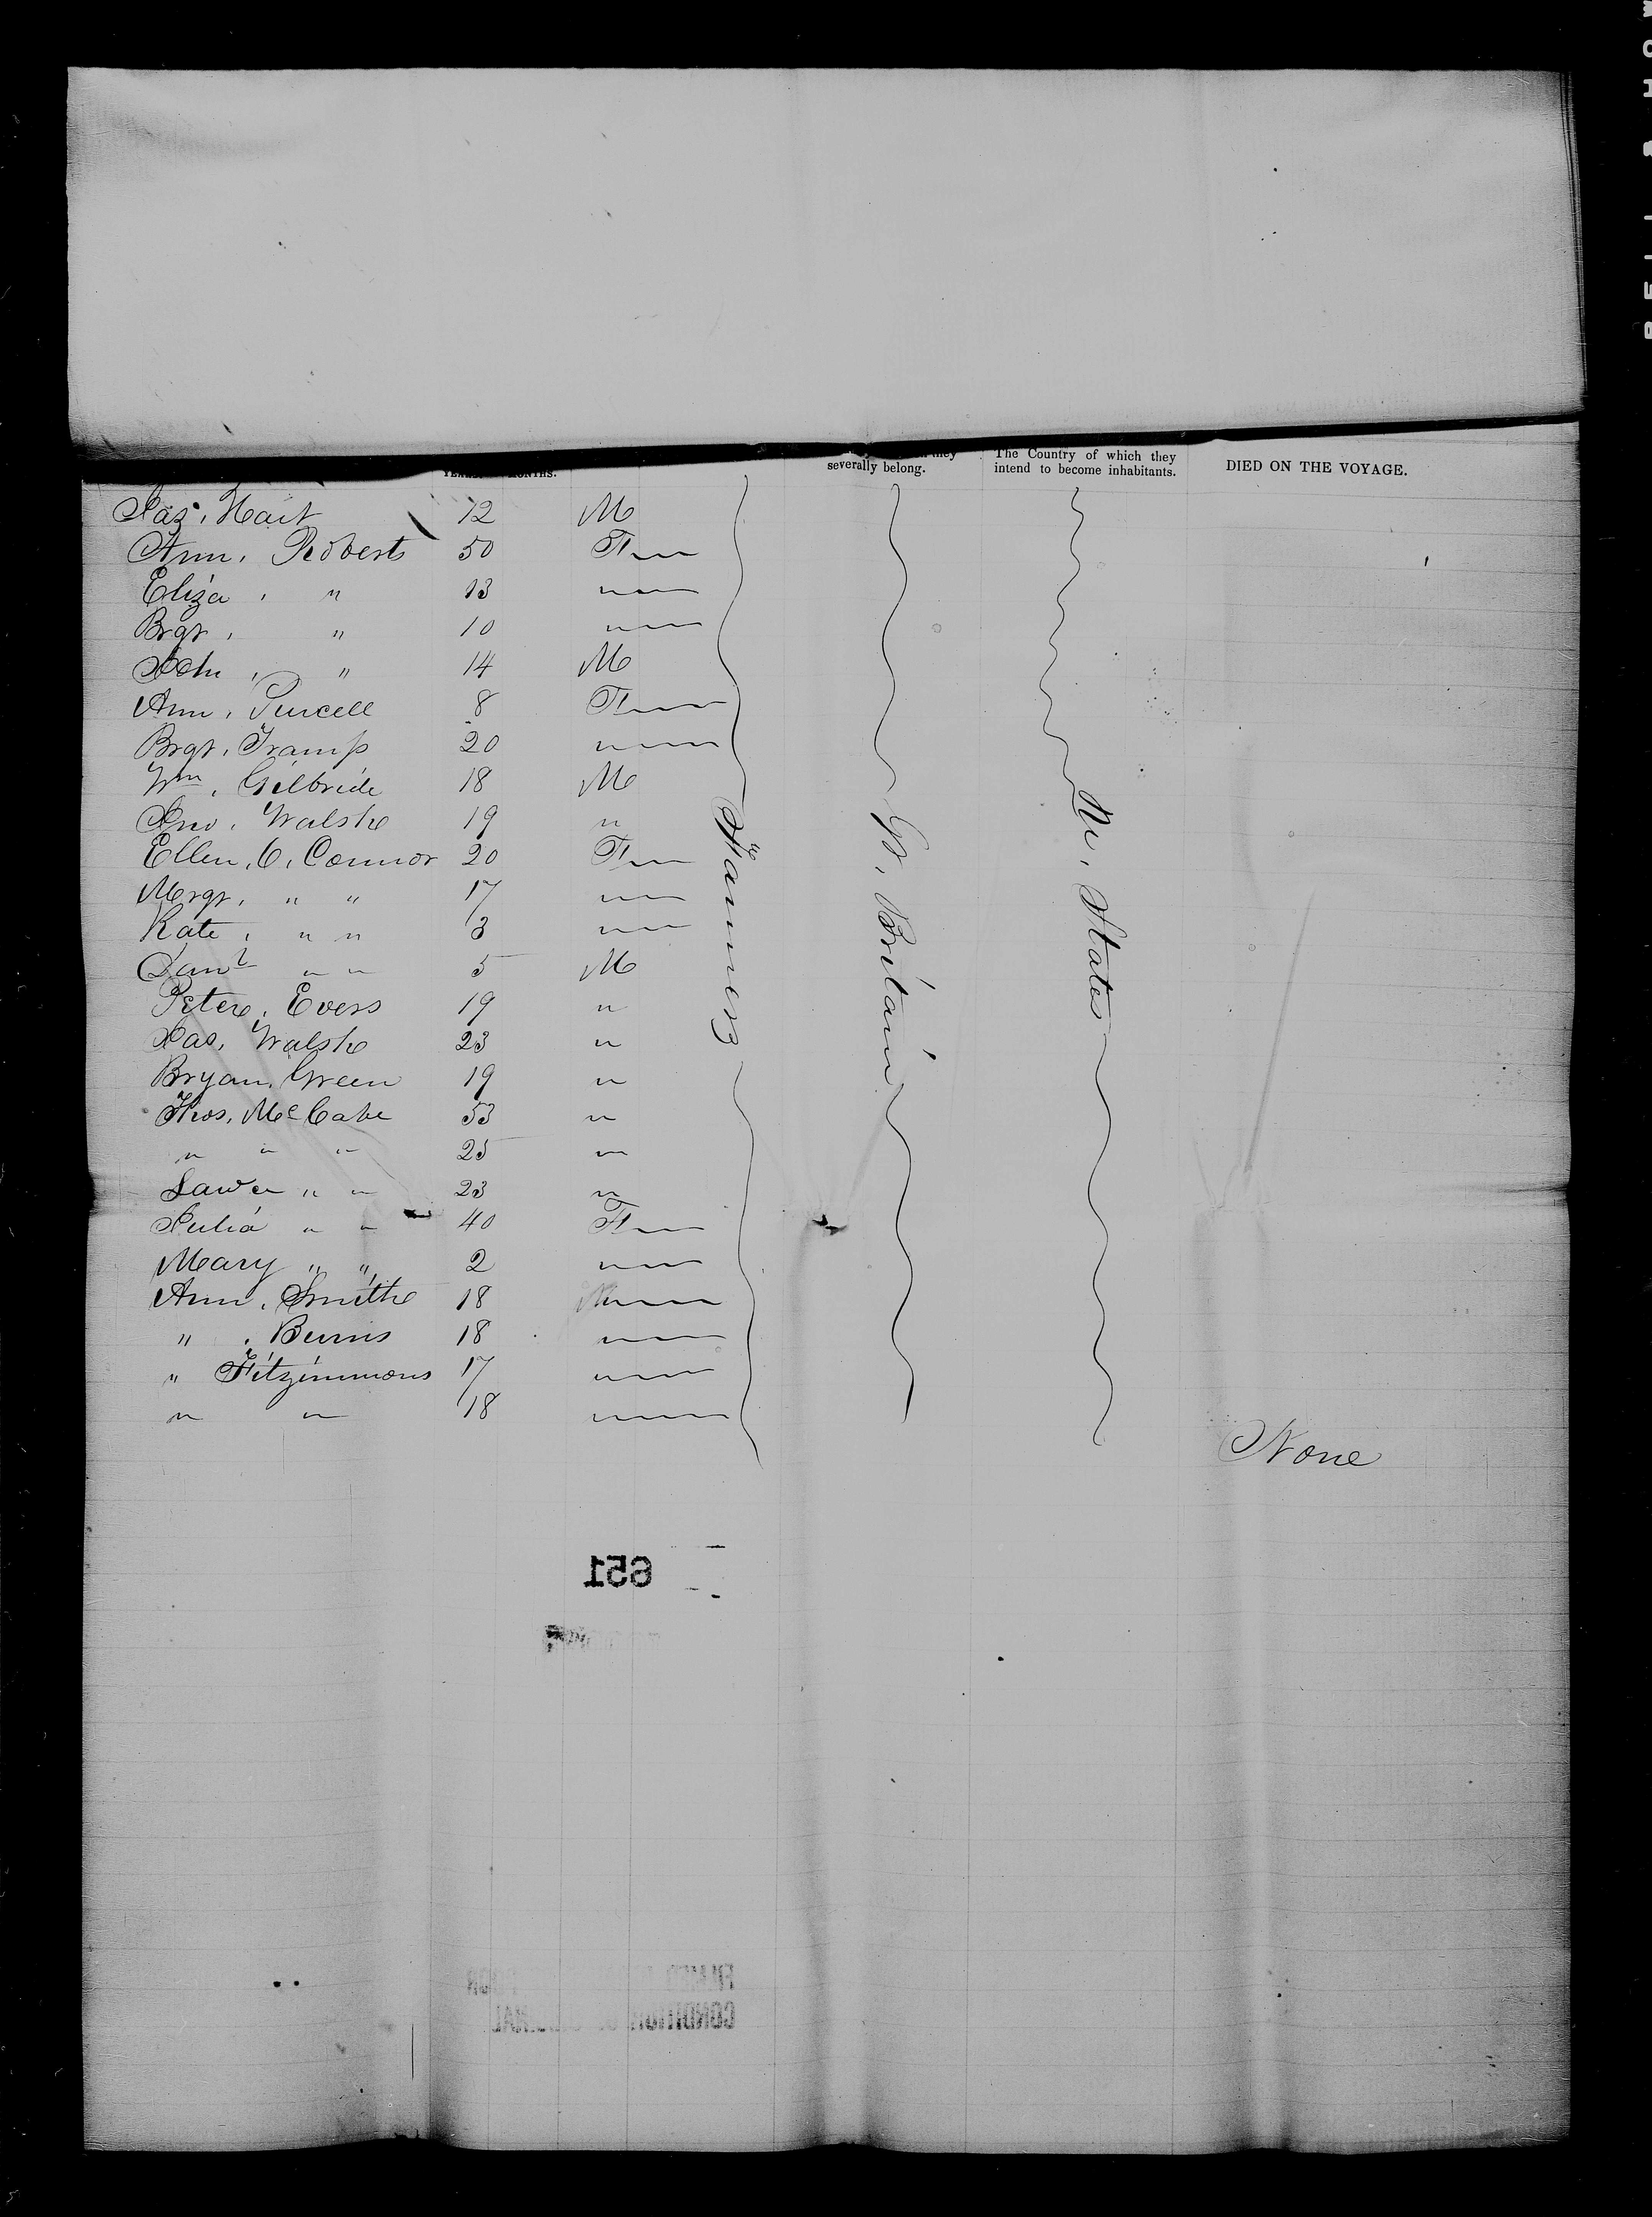 severally belong. The Country of which they
intend to become inhabitants. DIED ON THE VOYAGE.
Jas. Hart 12 M
Ann. Roberts 50 F
Eliza " 13 "
Brgt. " 10 "
John " 14 M
Ann. Purcell 8 F
Brgt. Tramp 20 "
Wm. Gilbride 18 M
Jno. Walshe 19 "
Ellen. O. Connor 20 F
Mrgt. " " 17 "
Kate. " " 3 "
Danl " " 5 M
Peter. Evers 19 "
Jas. Walshe 23 "
Bryan. Green 19 "
Thos. McCabe 53 "
" " " 25 "
Lawce " " 23 "
Julia " " 40 F
Mary " " 2 "
Ann. Smithe 18 "
" . Burns 18 "
" Fitzimmons 17 "
" " 18 "
Farmers
Gt. Britain
Un. States
None
651